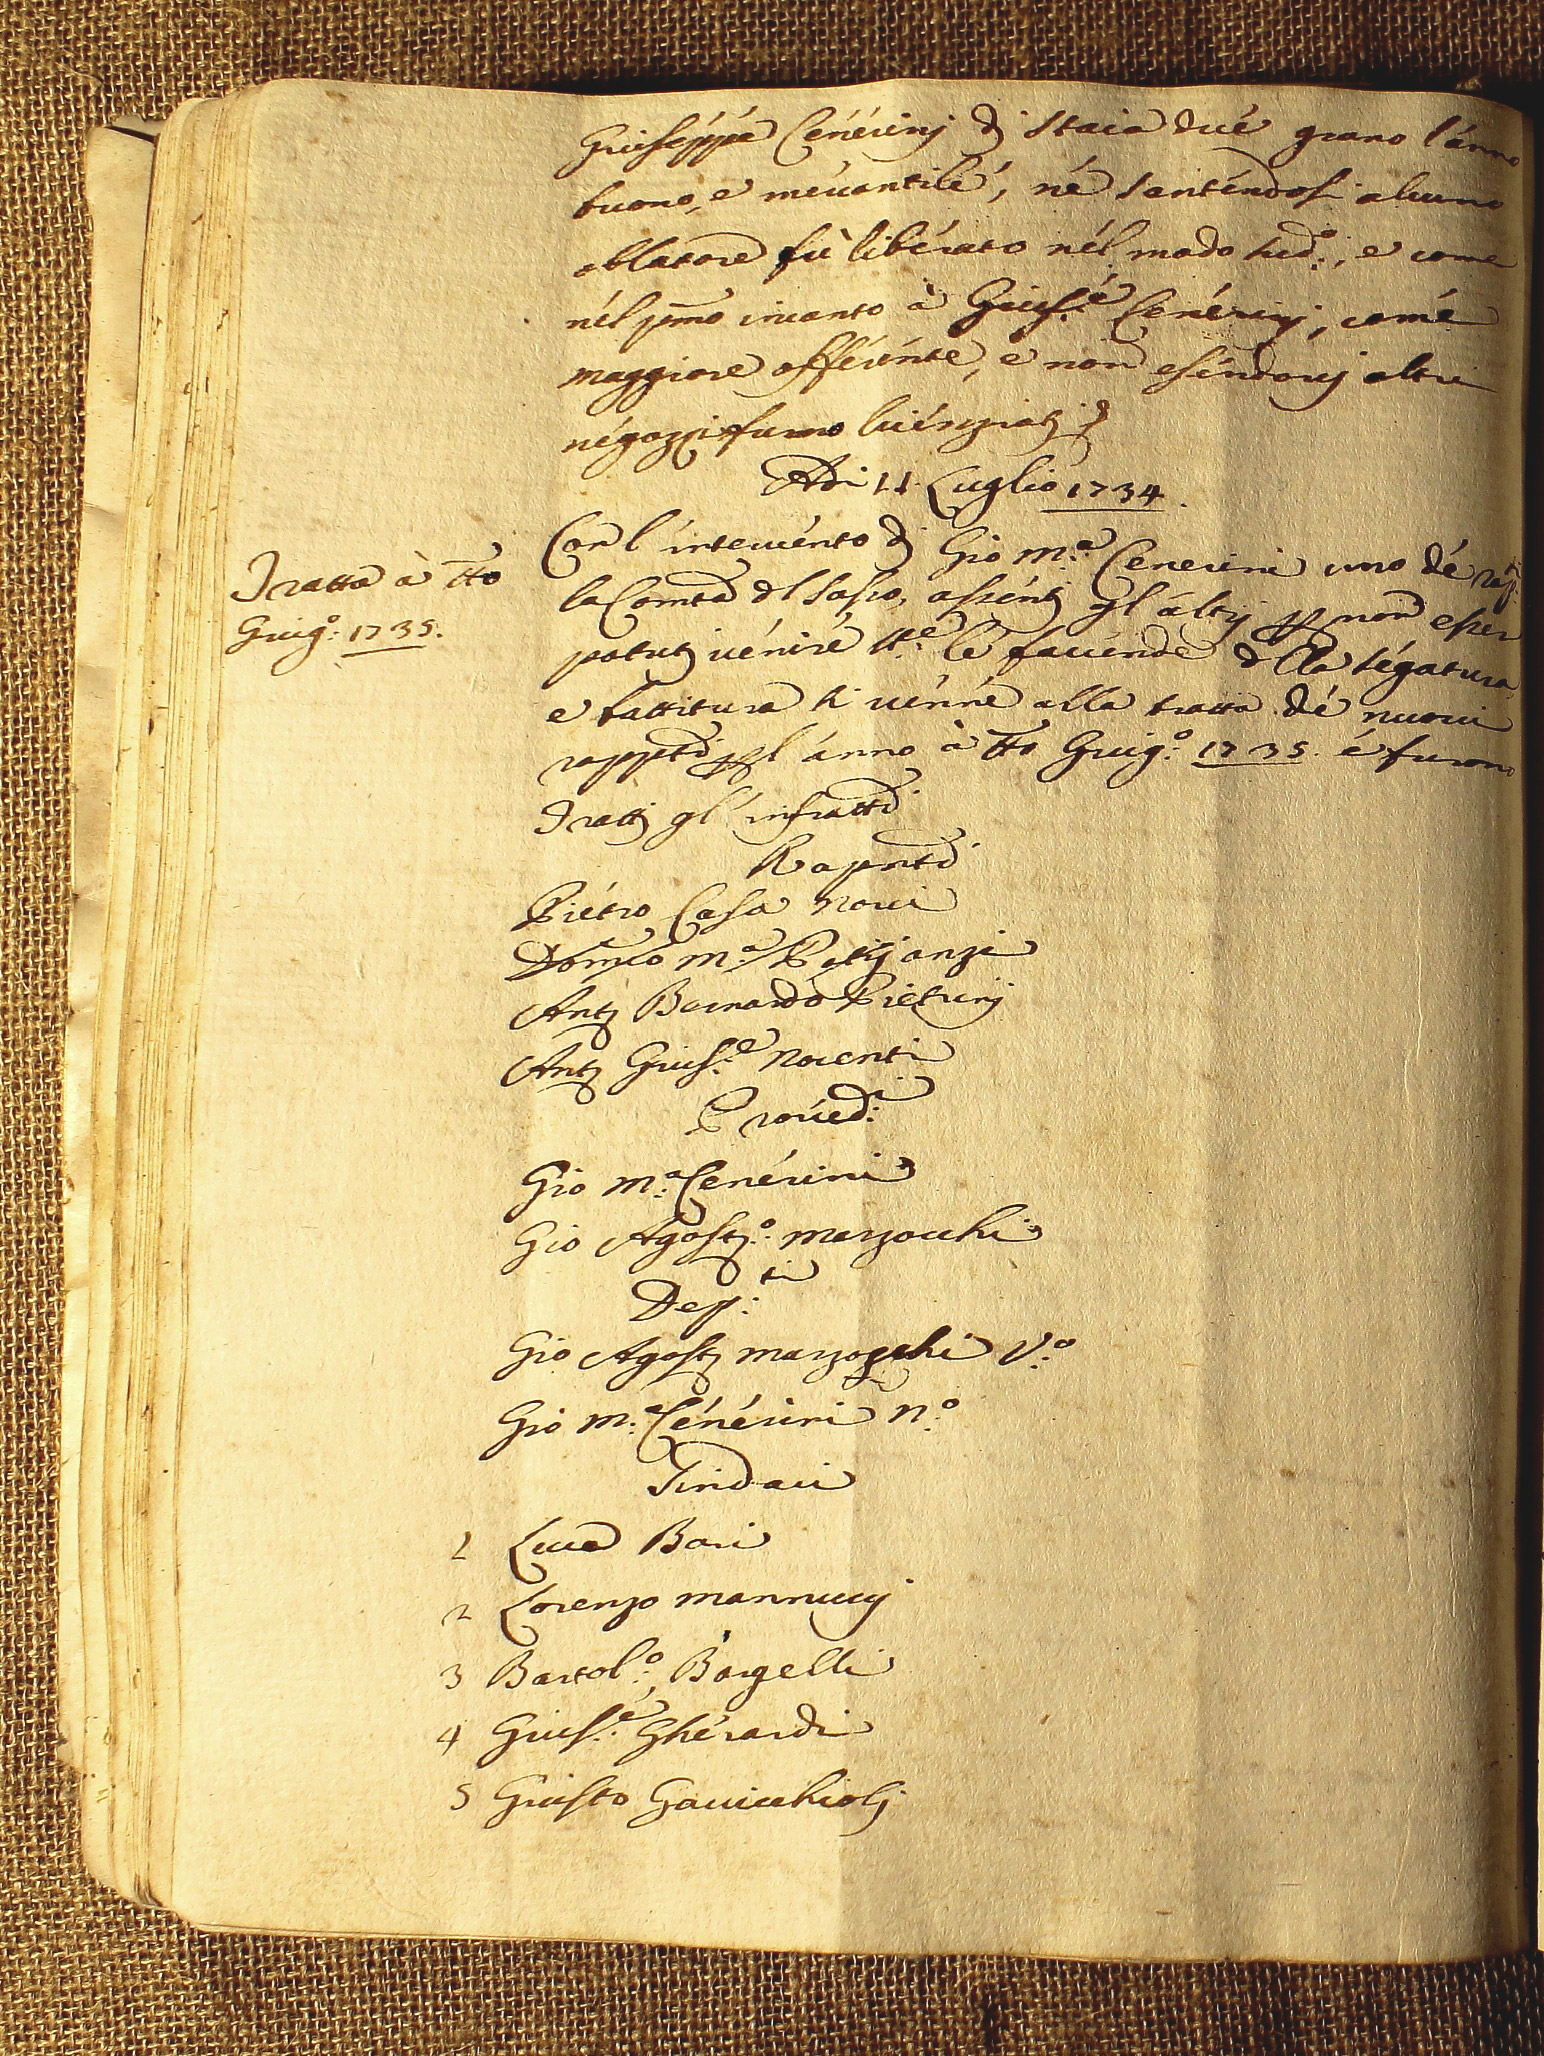 Giuséppé Cenérinj di Staia dué grano l'anno
buono, e mércantilé, né senténdosi alcuno
oblatore fù libérato nél modo sud:º, e come
nél pmo incanto à Gius:é Cenérinj, comé
maggiore offérénte, e non esséndovj altri
négozzi furno licénziatj
Adi 11 Luglio 1734.
Tratta à tto
Giug:º 1735.
Con l'intervénto di Gio M:a Cenerini uno dé rap:
la Comtà del Sasso, assénti gl'altrj per non esser
potutj véniré stté lé faccénde della ségatura
e battitura si vénné alla tratta dé nuovi
rapptti per l'anno à tto Giug:º 1735. é furono
Tratti gl'infratti
Rapntti
Piétro Casa novi
Domco M:a
Antº Bernardo Pietrinj
Antº Gius:e Nocenti
Prouéd:i
Gio M:a Cenérini
Gio Agostº: Marzocchi
Dep:ti
Gio Agostº Marzocchi V:º
Gio M:a Cénérini N:º
Sindaci
1 Luca Bari
2 Lorenzo Mannuccj
3 Bartol:º Bargelli
4 Gius:é Ghérardi
5 Giusto Gavicchiolj